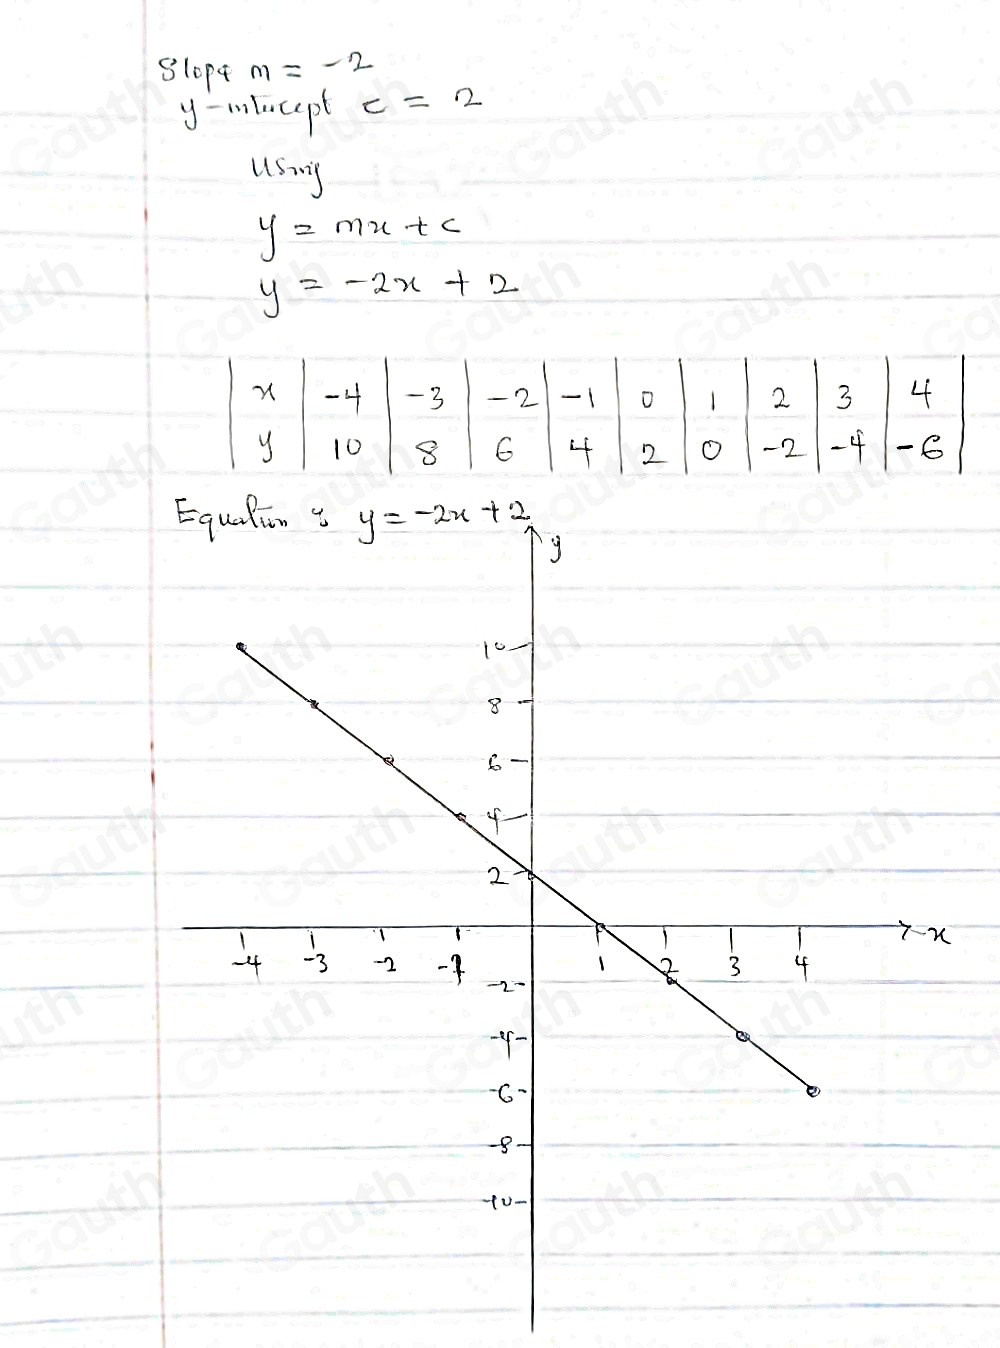 Slope m = -2
y-intercept c = 2
Using
y = mx + c
y = -2x + 2
x -4 -3 -2 -1 0 1 2 3 4
y 10 8 6 4 2 0 -2 -4 -6
Equation is y = -2x + 2
y
10
8
6
4
2
x
-4 -3 -2 -1 1 2 3 4
-2
-4
-6
-8
-10
Gauth